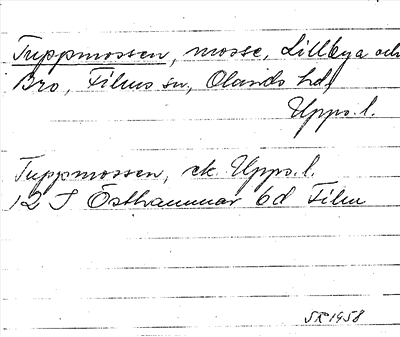 Tuppmossen, mosse, Lillbya och
Bro, Films sn, Olands hd,
Upps. l.
Tuppmossen, ek Upps. l.
12 I Östhammar 6d Film
SR 1958